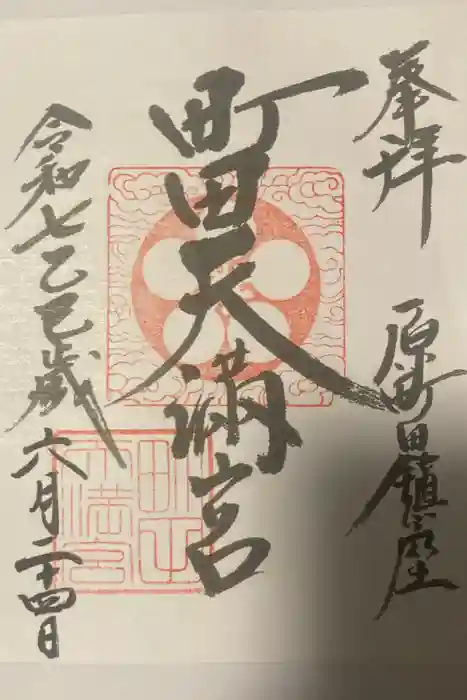 奉拝
原町田鎮座
町田天満宮
令和七乙巳歳
六月二十四日
町田天満宮